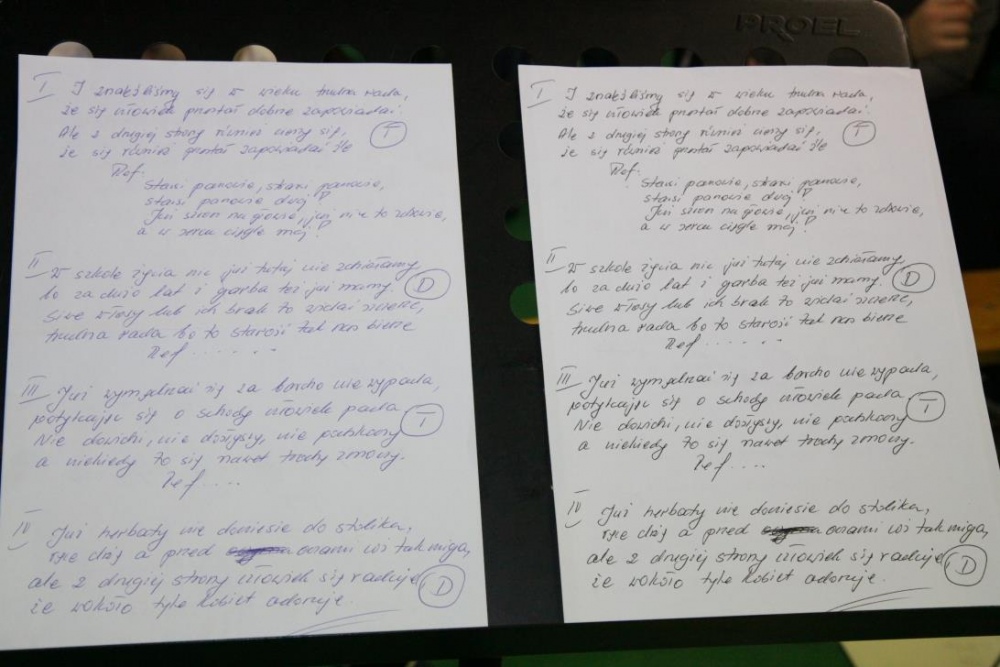 PROEL
I I znaleźliśmy się w wieku trudna rada,
że się człowiek przestał dobrze zapowiadać.
Ale z drugiej strony również cieszy się, T
że się również przestał zapowiadać źle
Ref.
Starsi panowie, starsi panowie,
starsi panowie dwaj!
Już szron na głowie, już nie to zdrowie,
a w sercu ciągle maj!
II W szkole życia nic już tutaj nie zdziałamy D
bo za dużo lat i garba też już mamy.
Siwe włosy lub ich brak to widać szczerze,
trudna rada bo to starość tak nas bierze
Ref.......
III Już wymądrzać się za bardzo nie wypada,
potykając się o schody człowiek pada T
Nie dowidzi, nie dosłyszy, nie podskoczy
a niekiedy to się nawet trochę zmoczy.
Ref....
IV Już herbaty nie doniesie do stolika,
ręce drżą a przed oczami coś tak miga,
ale z drugiej strony człowiek się raduje, D
że wokoło tyle kobiet adoruje.
I I znaleźliśmy się w wieku trudna rada,
że się człowiek przestał dobrze zapowiadać.
Ale z drugiej strony również cieszy się, T
że się również przestał zapowiadać źle
Ref.
Starsi panowie, starsi panowie,
starsi panowie dwaj!
Już szron na głowie, już nie to zdrowie,
a w sercu ciągle maj!
II W szkole życia nic już tutaj nie zdziałamy
bo za dużo lat i garba też już mamy. D
Siwe włosy lub ich brak to widać szczerze,
trudna rada bo to starość tak nas bierze
Ref.......
III Już wymądrzać się za bardzo nie wypada,
potykając się o schody człowiek pada T
Nie dowidzi, nie dosłyszy, nie podskoczy
a niekiedy to się nawet trochę zmoczy.
Ref....
IV Już herbaty nie doniesie do stolika,
ręce drżą a przed oczami coś tak miga,
ale z drugiej strony człowiek się raduje, D
że wokoło tyle kobiet adoruje.